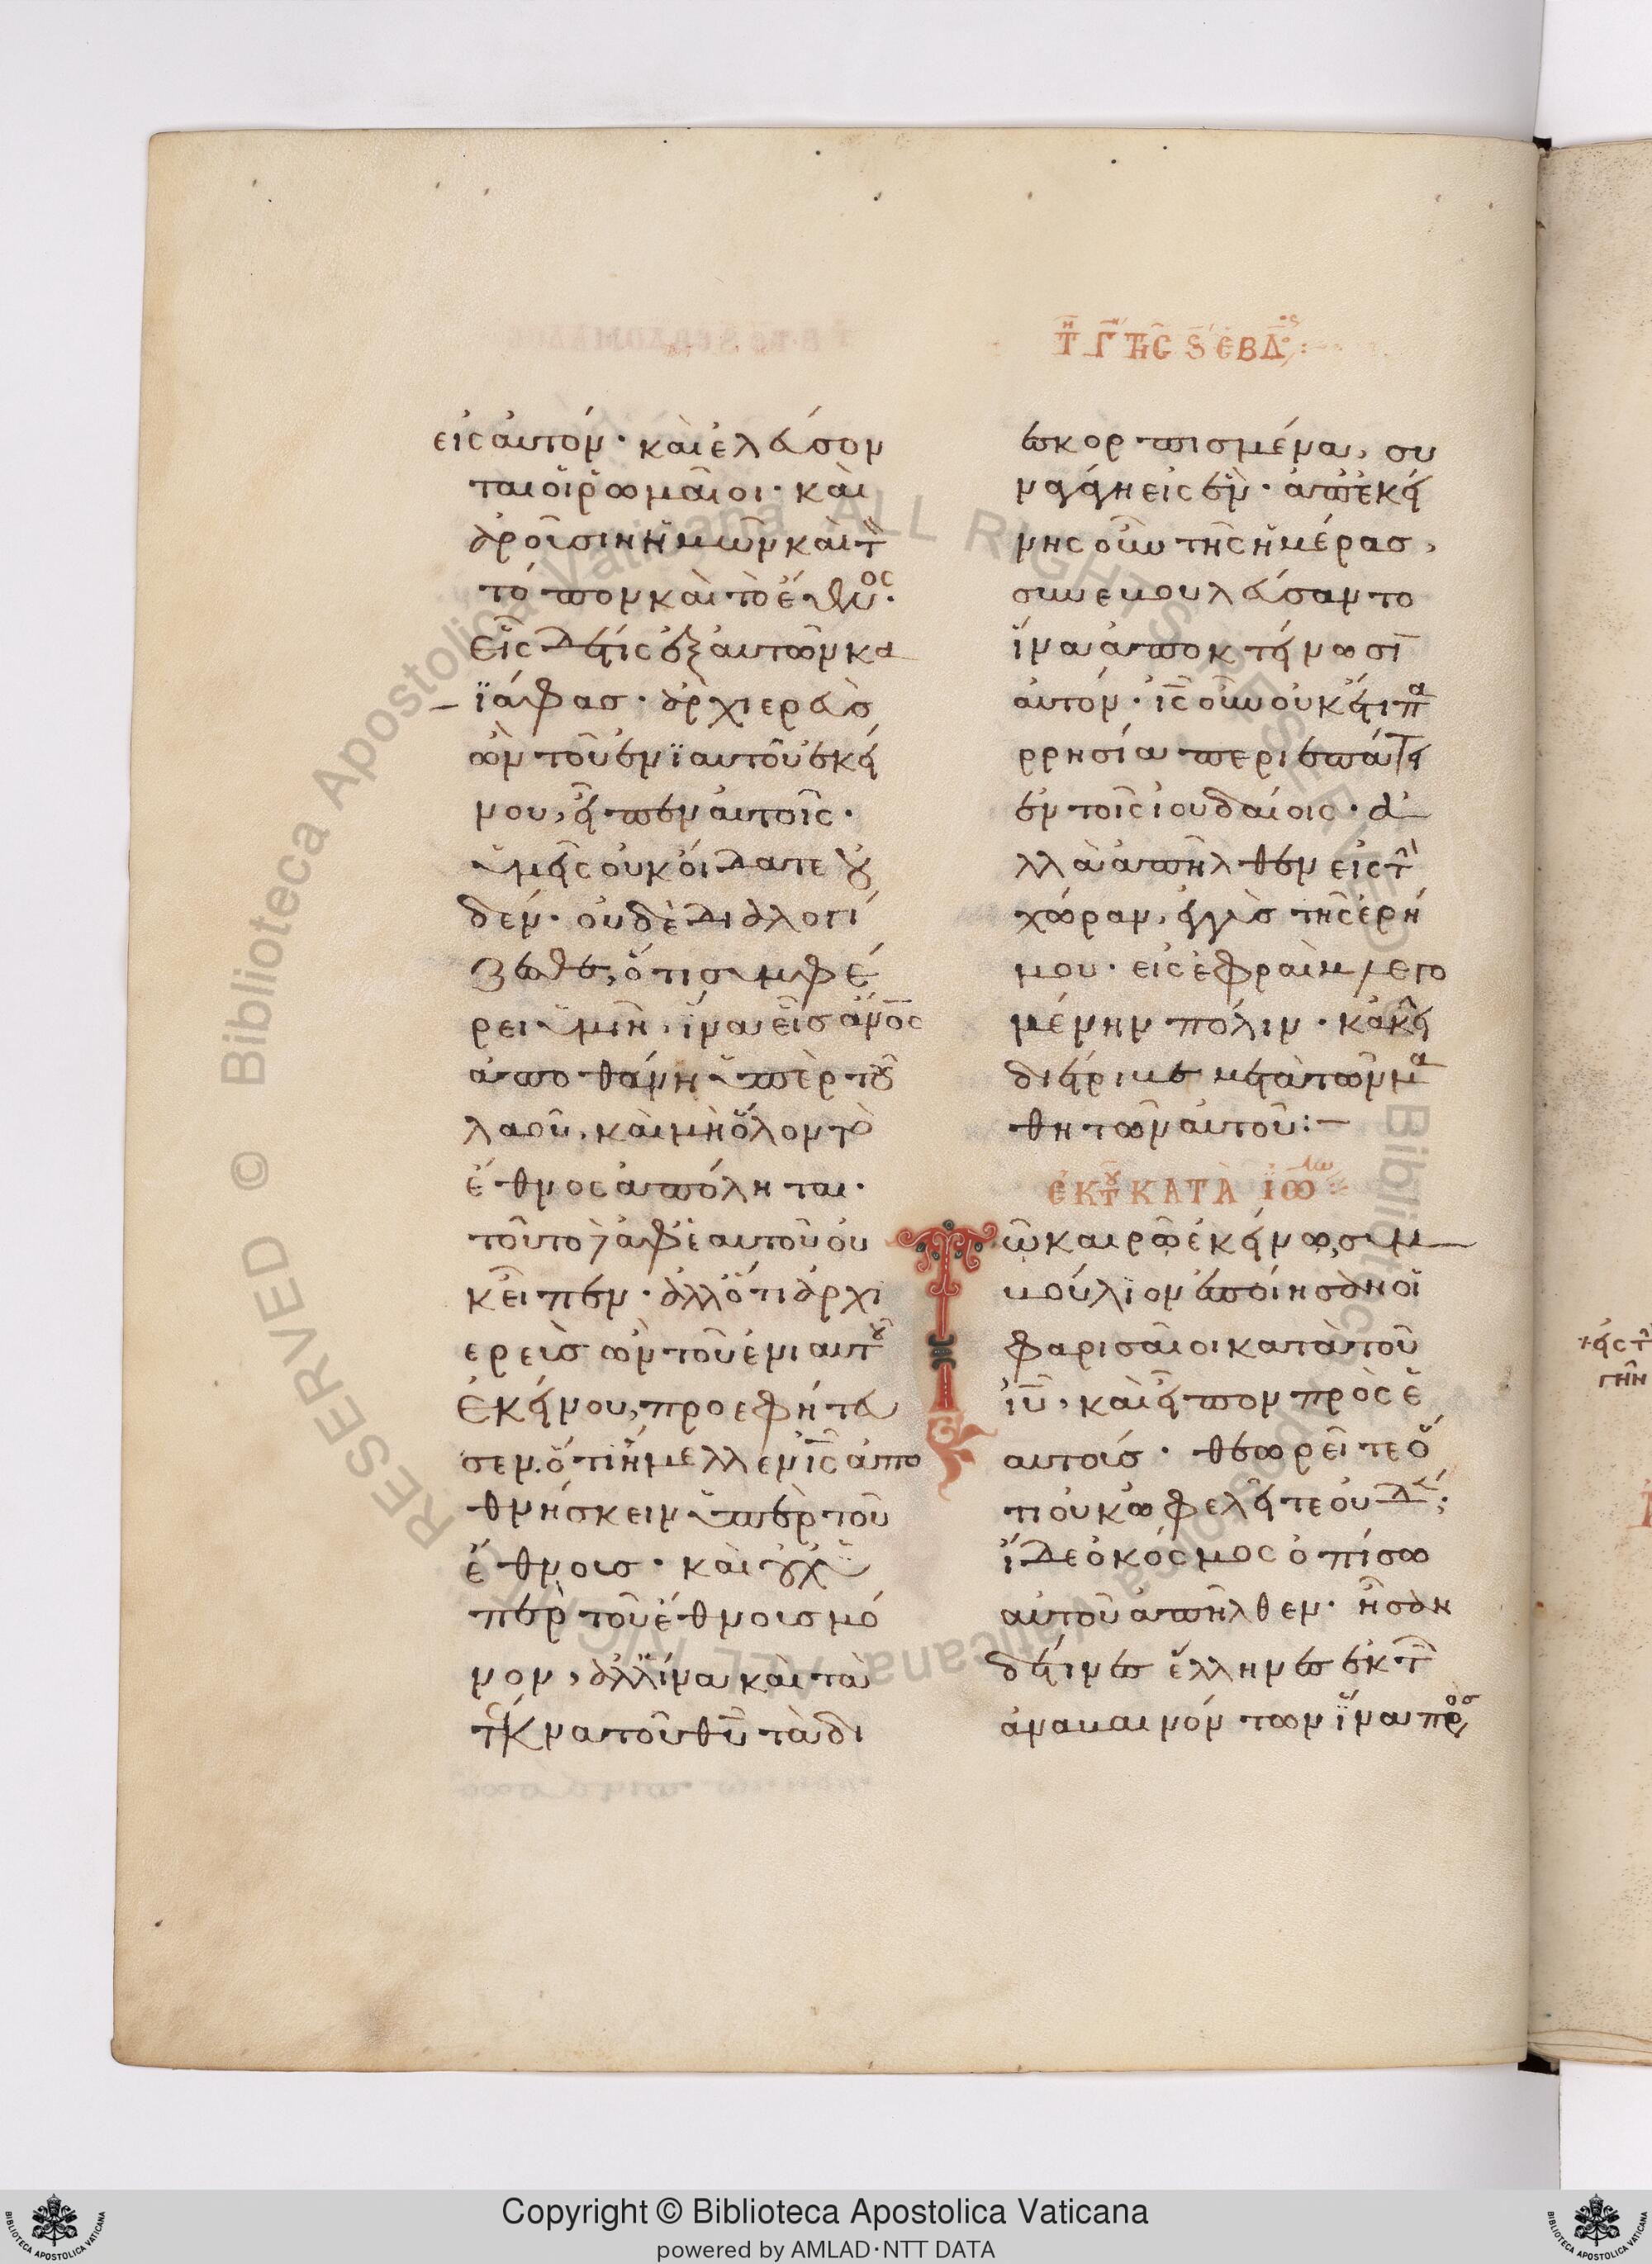 Τῇ Γ τῆς ϛ ἑβδ
εἰς αὐτόν· καὶ ἐλεύσον
ται οἱ ῥωμαῖοι· καὶ
ἀροῦσιν ἡμῶν καὶ τ
τόπον καὶ τὸ ἔθνος·
εἷς δέ τις ἐξ αὐτῶν κα
ϊάφας· ἀρχιερεὺς
ὢν τοῦ ἐνϊαυτοῦ ἐκεί
νου, εἶπεν αὐτοῖς·
ὑμεῖς οὐκ οἴδατε οὐ
δέν· οὐδὲ διαλογί
ζεσθε, ὅτι συμφέ
ρει ὑμῖν, ἵνα εἷς ἄνος
ἀποθάνη ὑπὲρ τοῦ
λαοῦ, καὶ μὴ ὅλον τὸ
ἔθνος ἀπόληται·
τοῦτο δὲ ἀφ' ἑαυτοῦ οὐ
κ εἶπεν· ἀλλ' ὅτι ἀρχι
ερεὺς ὢν τοῦ ἐνιαυτοῦ
ἐκείνου, προεφήτευ
σεν, ὅτι ἤμελλεν ις ἀπο
θνήσκειν ὑπὲρ τοῦ
ἔθνους· καὶ οὐχ ὑ
πὲρ τοῦ ἔθνους μό
νον, ἀλλ' ἵνα καὶ τὰ
τέκνα τοῦ θυ τὰ δι
εσκορπισμένα, συ
ναγάγη εἰς ἕν· ἀπ' ἐκεί
νης οὖν τῆς ἡμέρας,
συνεβουλεύσαντο
ἵνα ἀποκτείνωσιν
αὐτόν· ις οὖν οὐκ ἔτι πα
ρρησία περιεπάτει
ἐν τοῖς ἰουδαίοις· ἀ
λλὰ ἀπῆλθεν εἰς τὴν
χώραν, ἐγγὺς τῆς ἐρή
μου· εἰς ἐφραὶμ λεγο
μένην πόλιν· κἀκεῖ
διέτριβε μετὰ τῶν μα
θητῶν αὐτοῦ:—
ἐκ τοῦ κατὰ ἰω
Τῶ καιρῶ ἐκείνω, συμ
βούλιον ἐποίησαν οἱ
φαρισαῖοι κατὰ τοῦ
ιυ, καὶ εἶπον πρὸς ἑ
αυτούς· θεωρεῖτε ὅ
τι οὐκ ὠφελεῖτε οὐδέν·
ἴδε ὁ κόσμος ὀπίσω
αὐτοῦ ἀπῆλθεν· ἦσαν
δέ τινες ἕλληνες ἐκ τῶν
ἀναβαινόντων ἵνα προσ
Copyright © Biblioteca Apostolica Vaticana
powered by AMLAD·NTT DATA